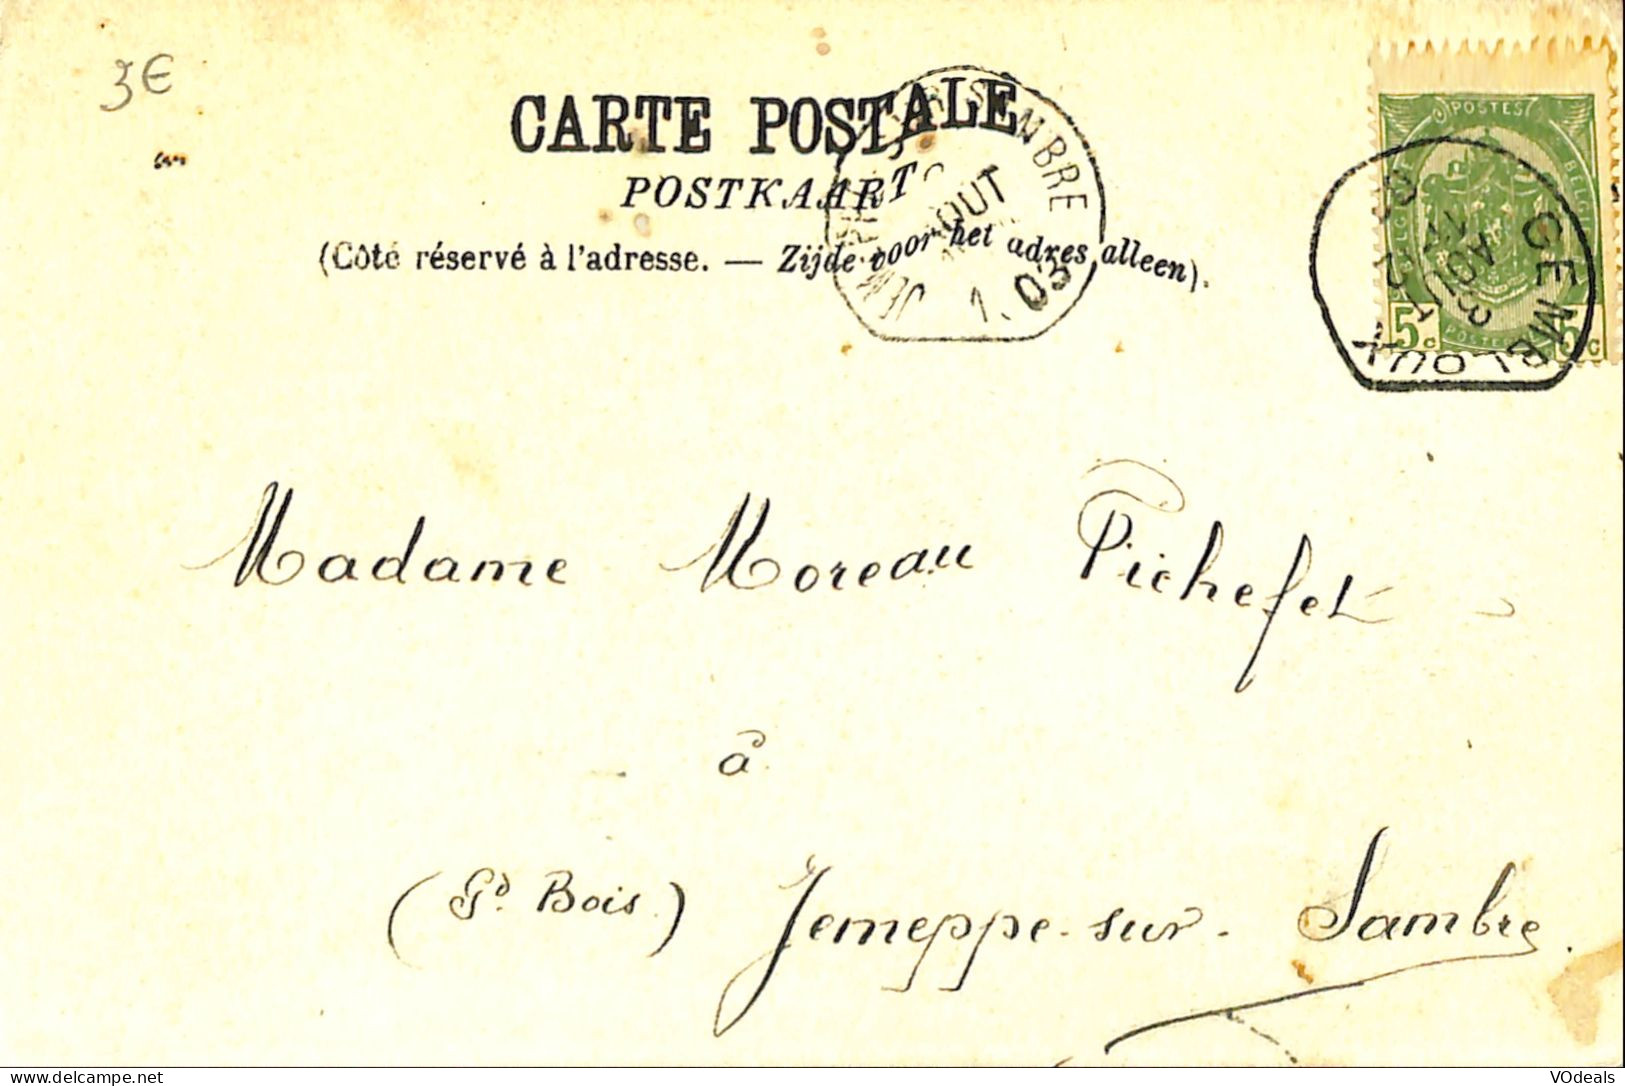 3€
CARTE POSTALE
POSTKAART
(Côté réservé à l'adresse. — Zijde voor het adres alleen).
SAMBRE
AOUT
03
POSTES
BELGIË
5c
5c
GEMBLOUX
AOUT
03
Madame Moreau Pichefet
à
(Gd. Bois.) Jemeppe-sur-Sambre.
VOdeals